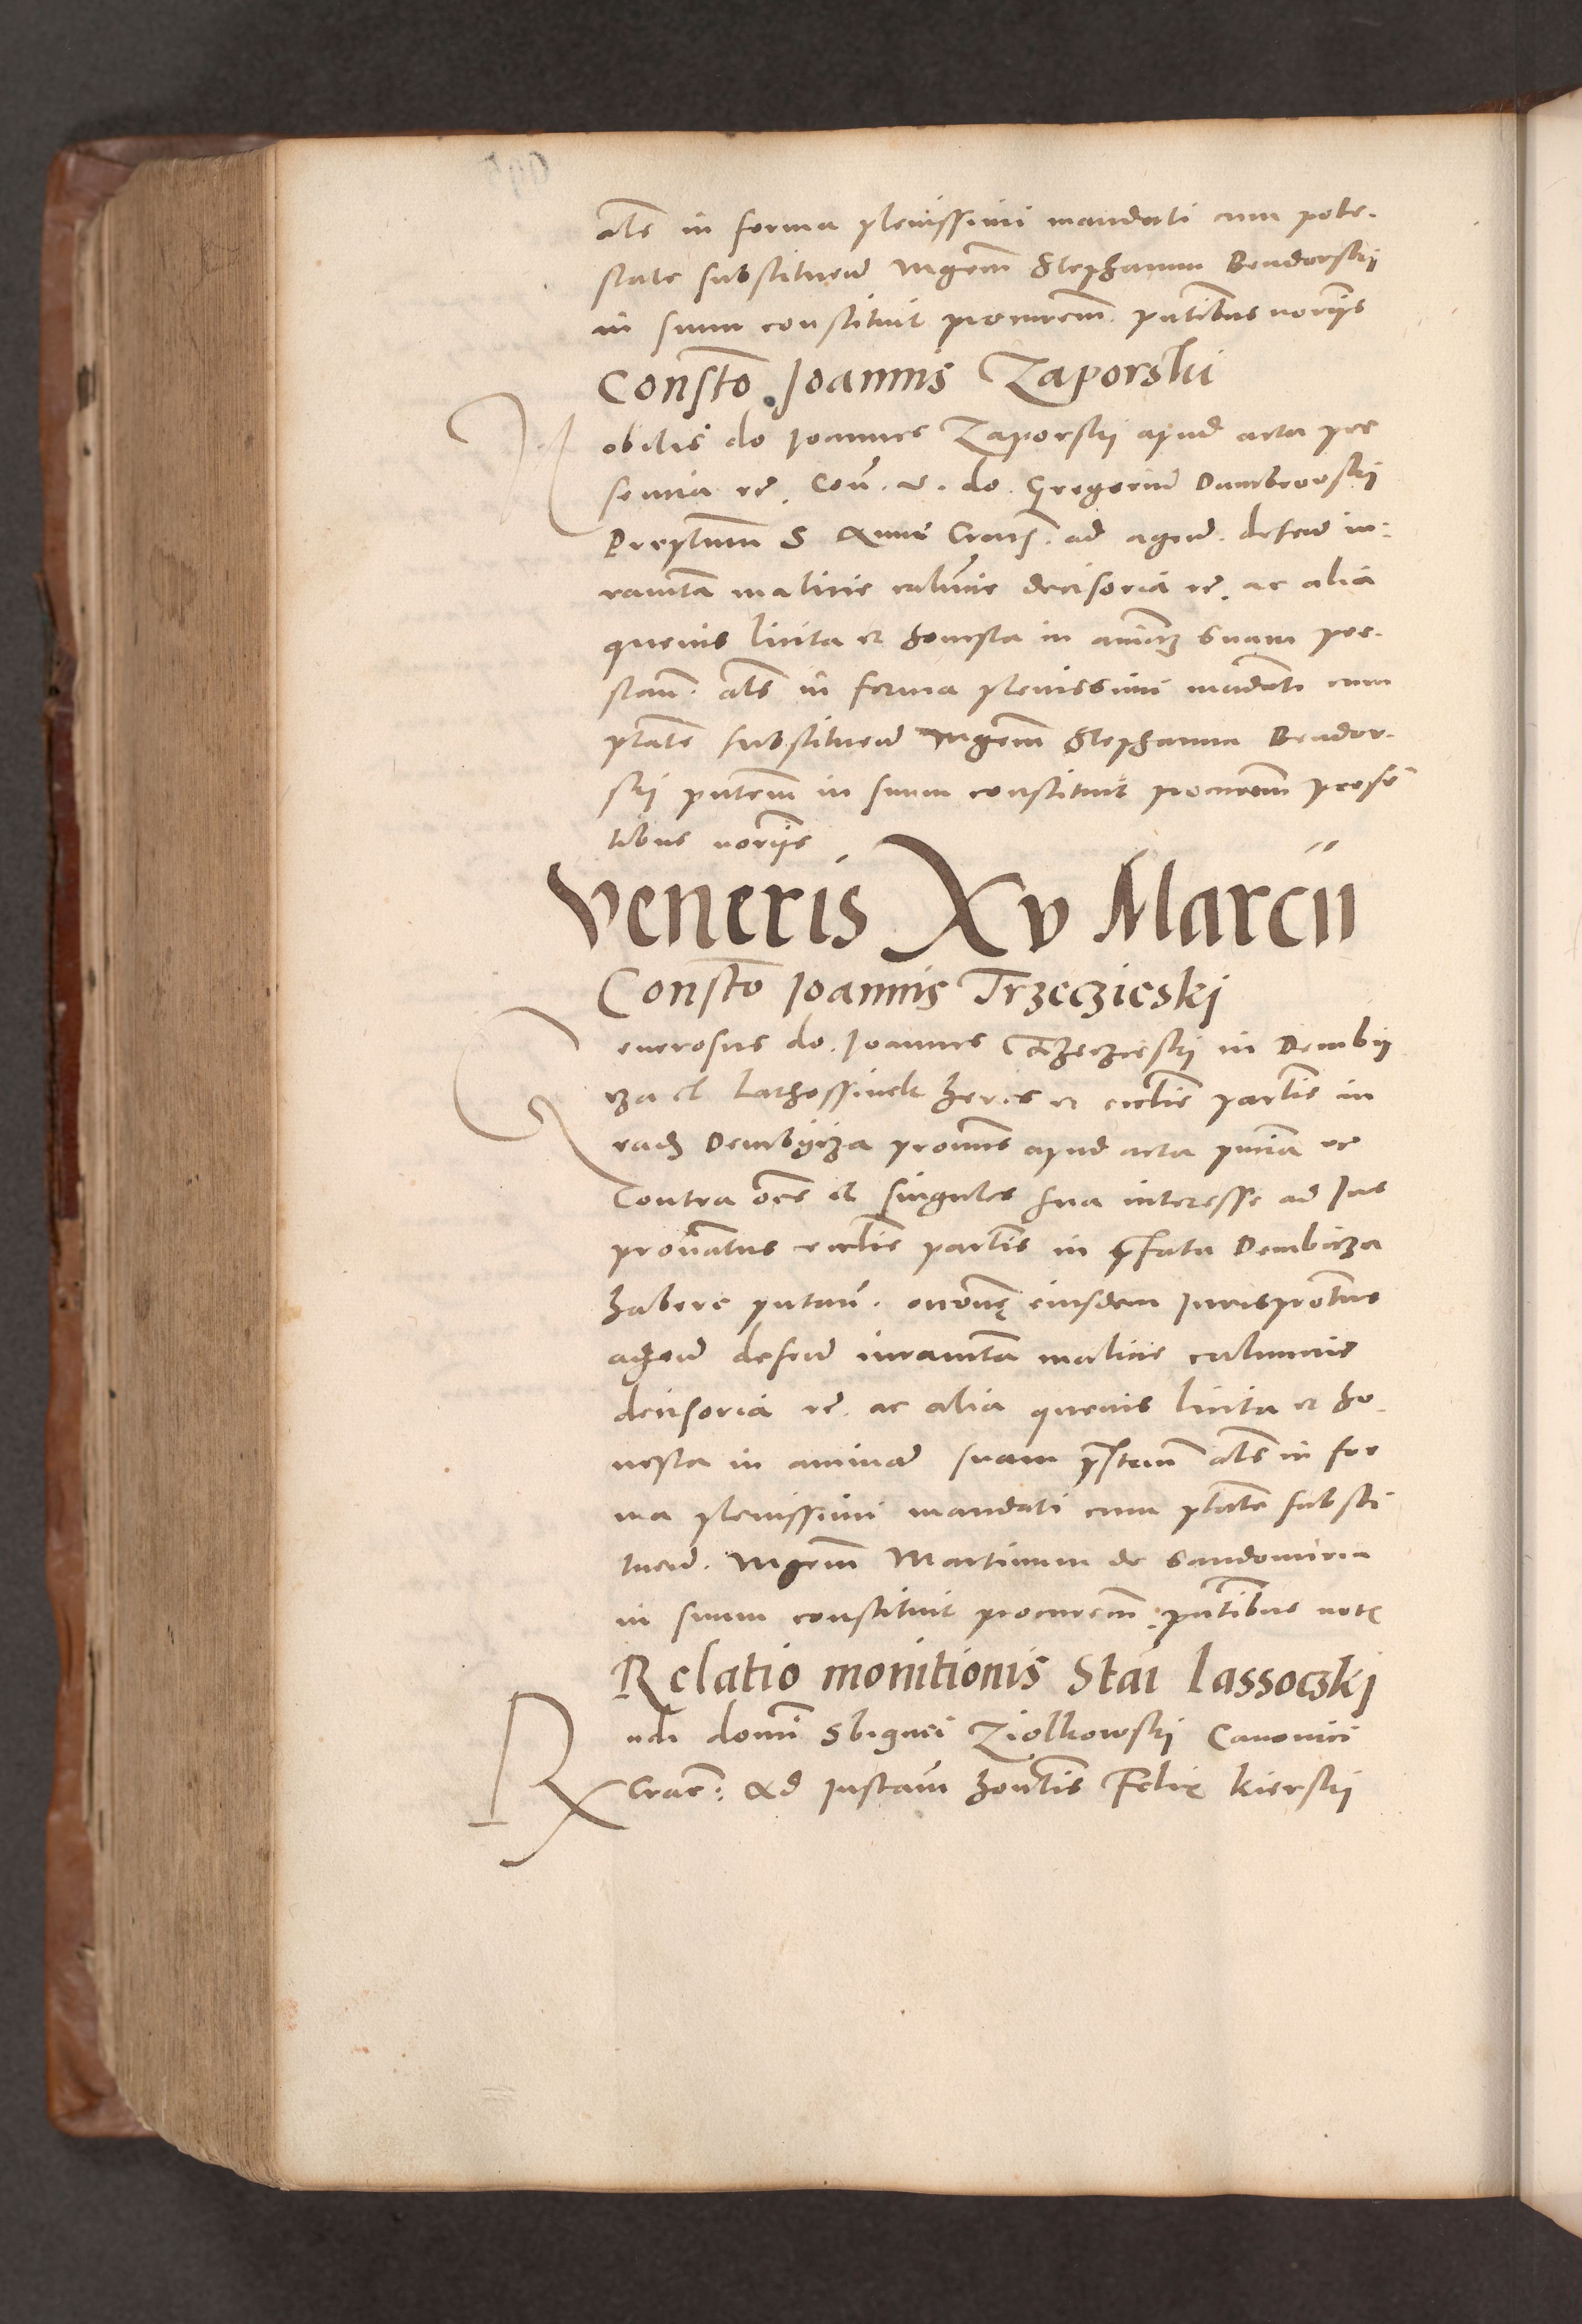 als in forma plenissimi mandati cum pote-
state substituen mgrm Stephanum Bendorskij
in suum constituit procurem pntibus norijs
Consto Joannis Zaporskii
Nobilis do Joannes Zaporskij apud acta pre
sencia re. Con. v. do. Gregorium Dambrowskij
S Anne Crac. ad agend. defend iu-
ramta malicie calunie decisoria re. ac alia
quevis licita et honesta in animam suam pre-
stan. als in forma plenissimi madati cum
ptate substituen mgrm Stephanum Bendor-
skij pntem in suum constituit procurem prese
tibus norijs
Veneris Xv Marcii
Consto Joannis Trzeczieski
Generosus do. Joannes Trzeczieskij in Dembij
cza et Lathossinek heres et eiclie partis in
eadem Dembijcza pronus apud acta pncia re
Contra oes et singulos sua interesse ad Jus
pronatus eiclie partis in pfata Dembicza
habere putan. eiusdem Jurisprontus
agend defend iuramta malicie calumnie
decisoria re. ac alia quevis licita et ho-
nesta in animam suam pstan als in for
ma plenissimi mandati cum ptate substi
tuen. Mgrm Martinum de Sandomiria
in suum constituit procurem. pntibus not
Relatio monitionis Stai Lassoczki
Rndi domi Sbignei Ziolkowski Canonici
Crac: Ad Instam honlis Felix Kierskij